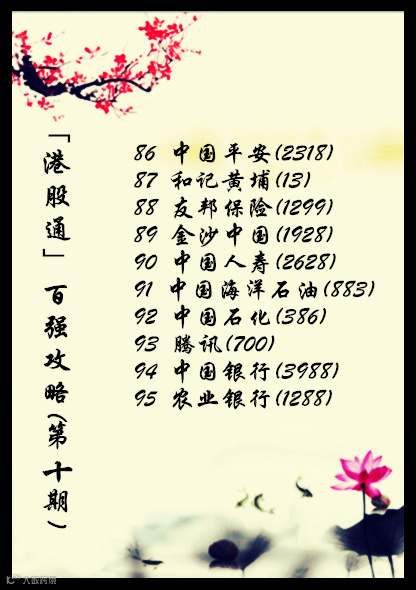 「港股通」百强攻略(第十期)
86 中国平安(2318)
87 和记黄埔(13)
88 友邦保险(1299)
89 金沙中国(1928)
90 中国人寿(2628)
91 中国海洋石油(883)
92 中国石化(386)
93 腾讯(700)
94 中国银行(3988)
95 农业银行(1288)
大数跨境